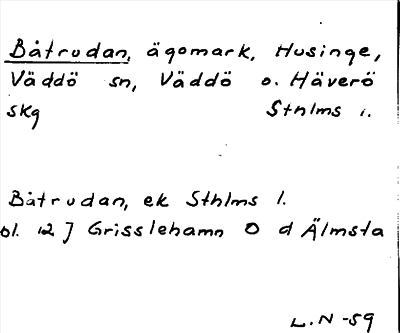 Båtrudan, ägomark, Husinge,
Väddö sn, Väddö o. Häverö
skg Sthlms l.
Båtrudan, ek Sthlms l.
bl. 12 J Grisslehamn O d Älmsta
L.N -59